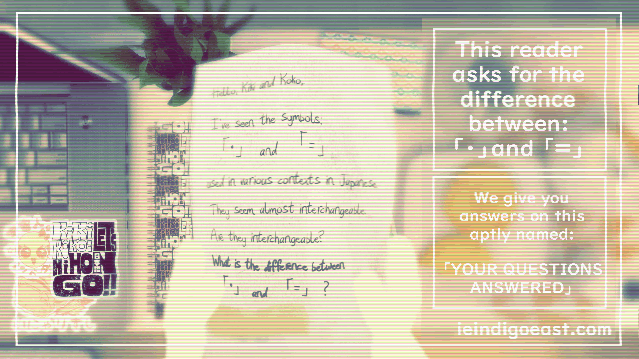 Hello, Kiki and Koko,
I've seen the symbols,
「・」 and 「=」
used in various contexts in Japanese.
They seem almost interchangeable.
Are they interchangeable?
What is the difference between
「・」 and 「=」 ?
NiHON
GO!!
This reader
asks for the
difference
between:
「・」and「=」
We give you
answers on this
aptly named:
「YOUR QUESTIONS
ANSWERED」
ieindigoeast.com